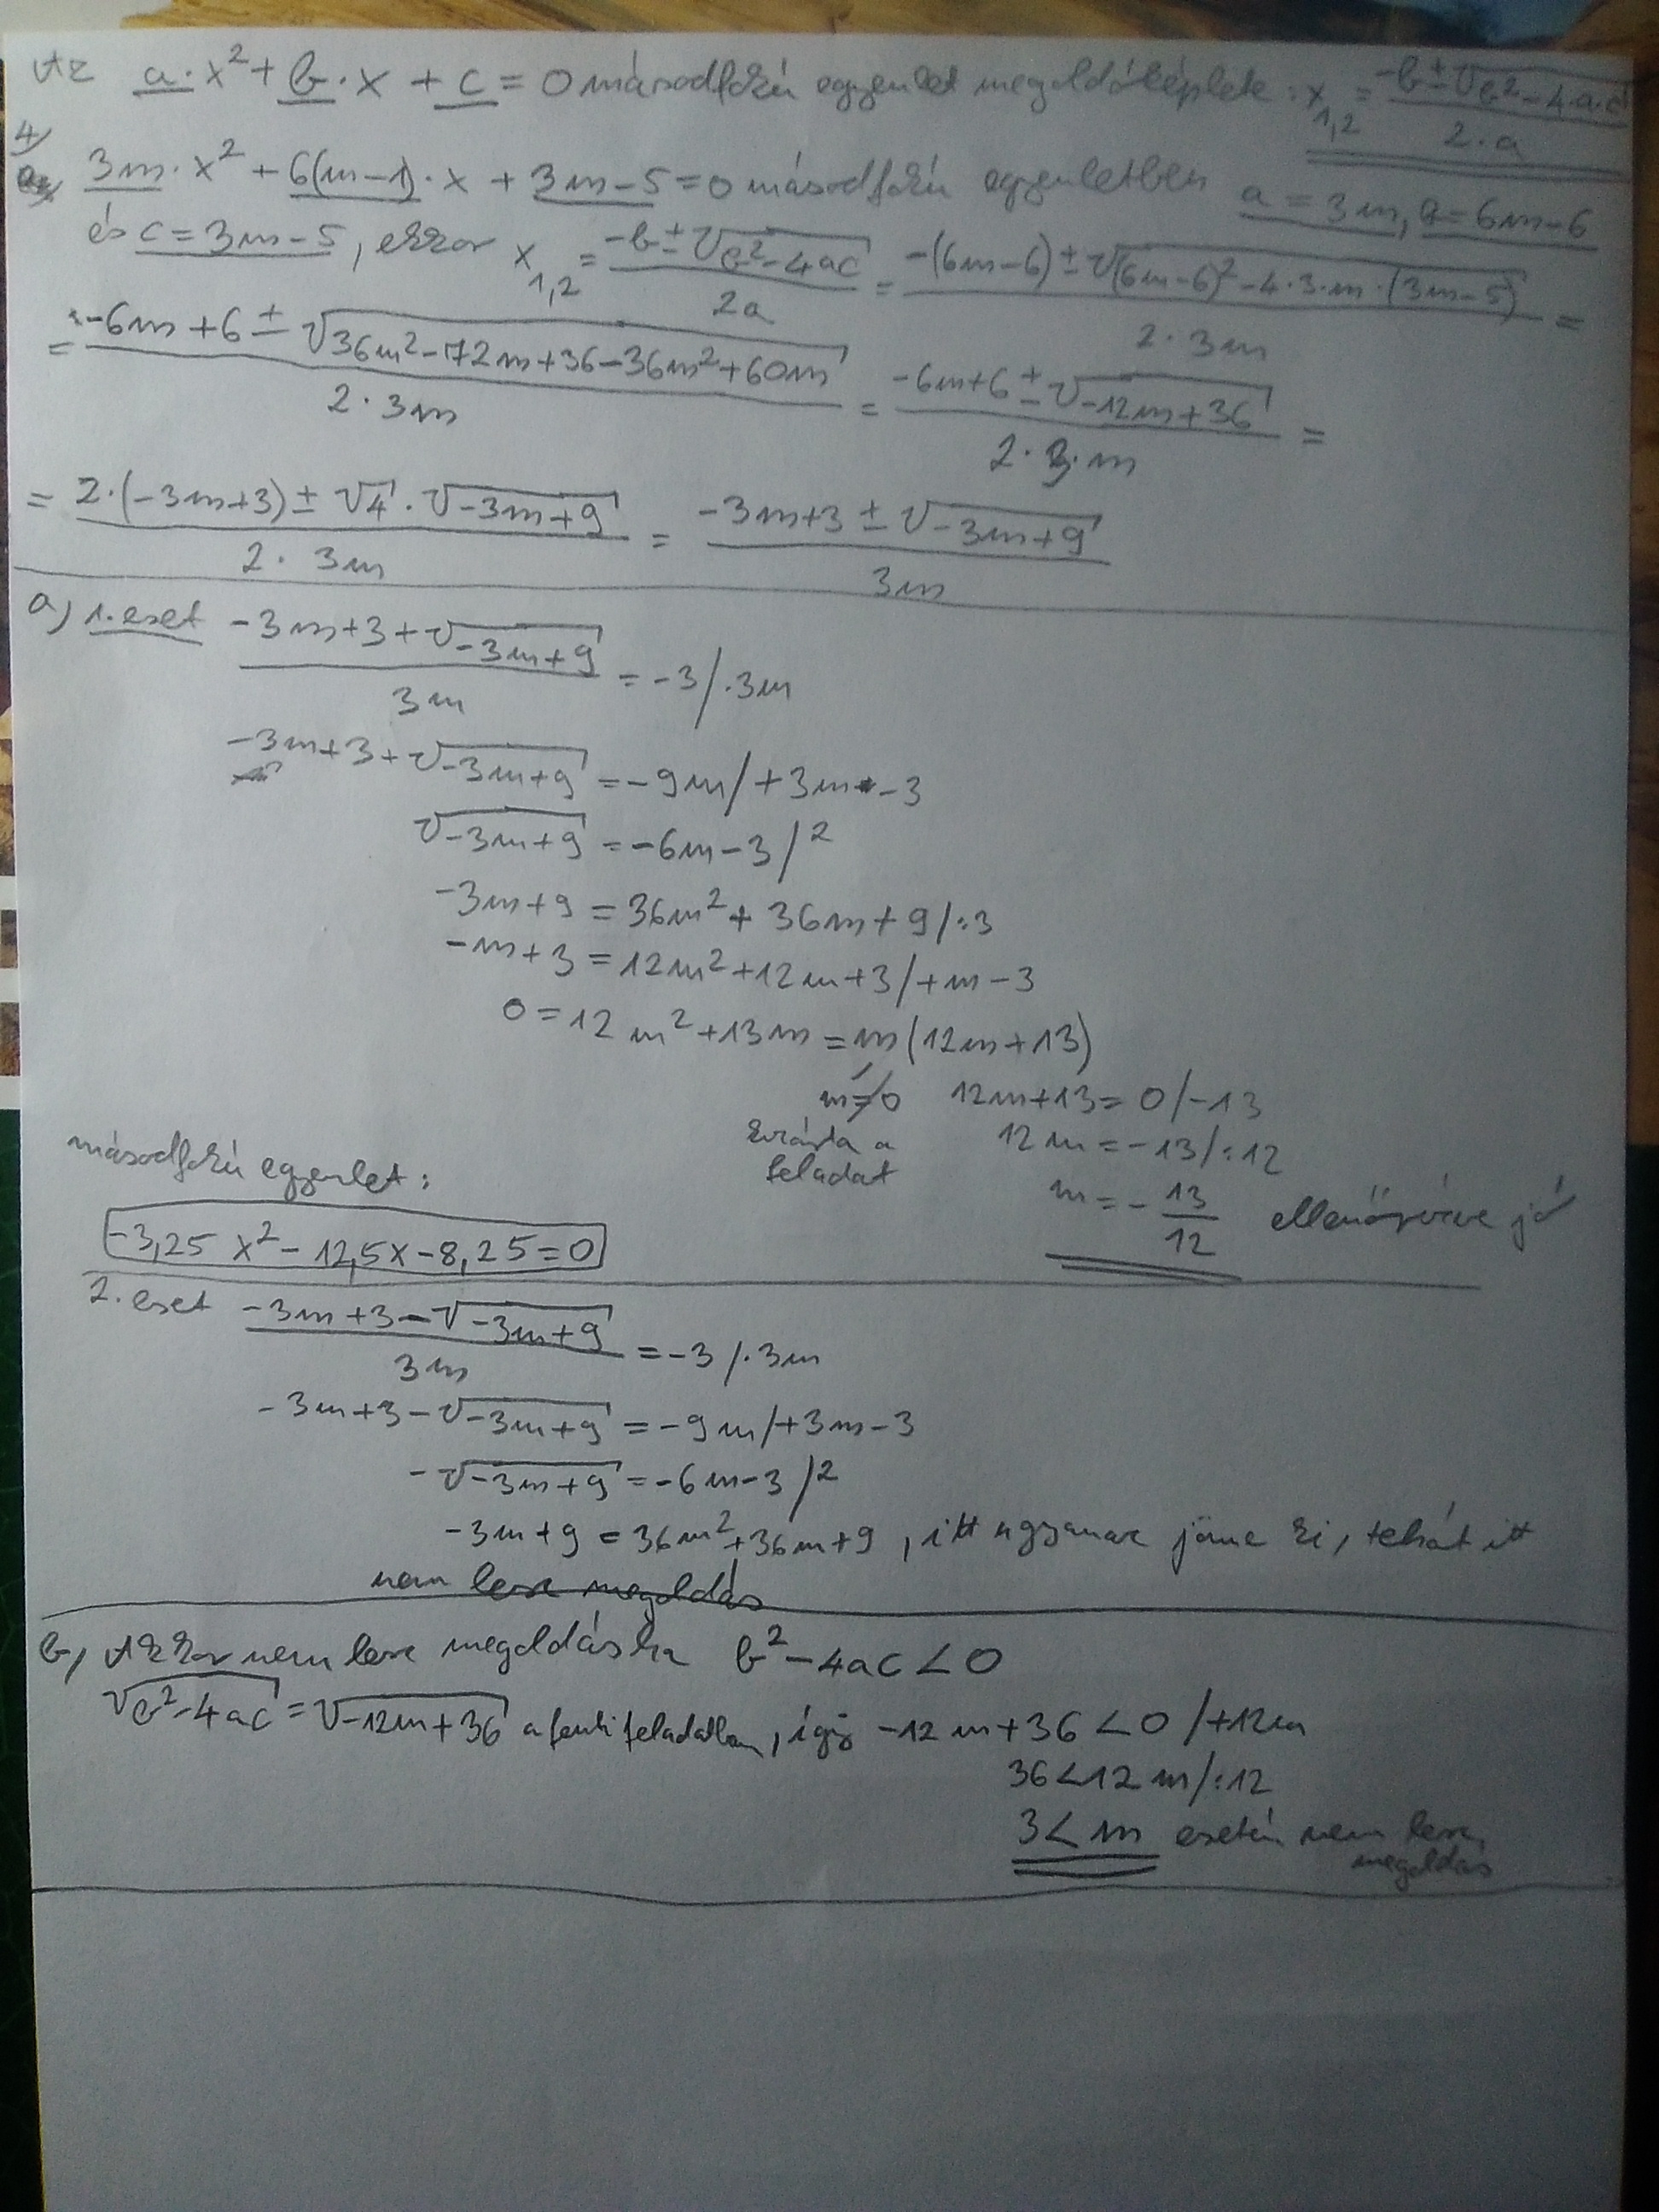 Az a·x²+b·x+c=0 másodfokú egyenlet megoldóképlete: x₁,₂ = (-b±√(b²-4·a·c))/(2·a)
4/
3m·x²+6(m-1)·x+3m-5=0 másodfokú egyenletben a=3m, b=6m-6
és c=3m-5, ekkor x₁,₂ = (-b±√(b²-4ac))/(2a) = (-(6m-6)±√((6m-6)²-4·3·m·(3m-5)))/(2·3m) =
= (-6m+6±√(36m²-72m+36-36m²+60m))/(2·3m) = (-6m+6±√(-12m+36))/(2·3·m) =
= (2·(-3m+3)±√4·√(-3m+9))/(2·3m) = (-3m+3±√(-3m+9))/(3m)
a, 1. eset (-3m+3+√(-3m+9))/(3m) = -3 /·3m
-3m+3+√(-3m+9) = -9m /+3m -3
√(-3m+9) = -6m-3 /²
-3m+9 = 36m²+36m+9 /:3
-m+3 = 12m²+12m+3 /+m-3
0 = 12m²+13m = m(12m+13)
m≠0 12m+13=0 /-13
kizárta a feladat 12m=-13 /:12
m = -13/12 ellenőrizve jó
másodfokú egyenlet:
-3,25x²-12,5x-8,25=0
2. eset (-3m+3-√(-3m+9))/(3m) = -3 /·3m
-3m+3-√(-3m+9) = -9m /+3m-3
-√(-3m+9) = -6m-3 /²
-3m+9 = 36m²+36m+9, itt ugyanaz jönne ki, tehát itt
nem lesz megoldás
b, Akkor nem lesz megoldás ha b²-4ac<0
√(b²-4ac) = √(-12m+36) a fenti feladatban, így -12m+36<0 /+12m
36<12m /:12
3<m esetén nem lesz
megoldás